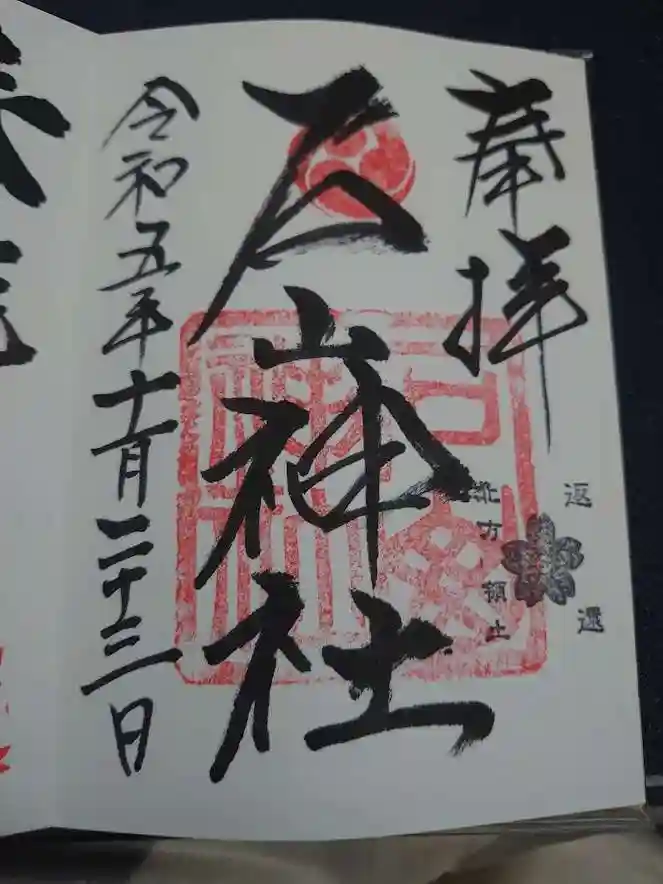 奉拝
石山神社
令和五年十一月二十三日
返還
北方領土